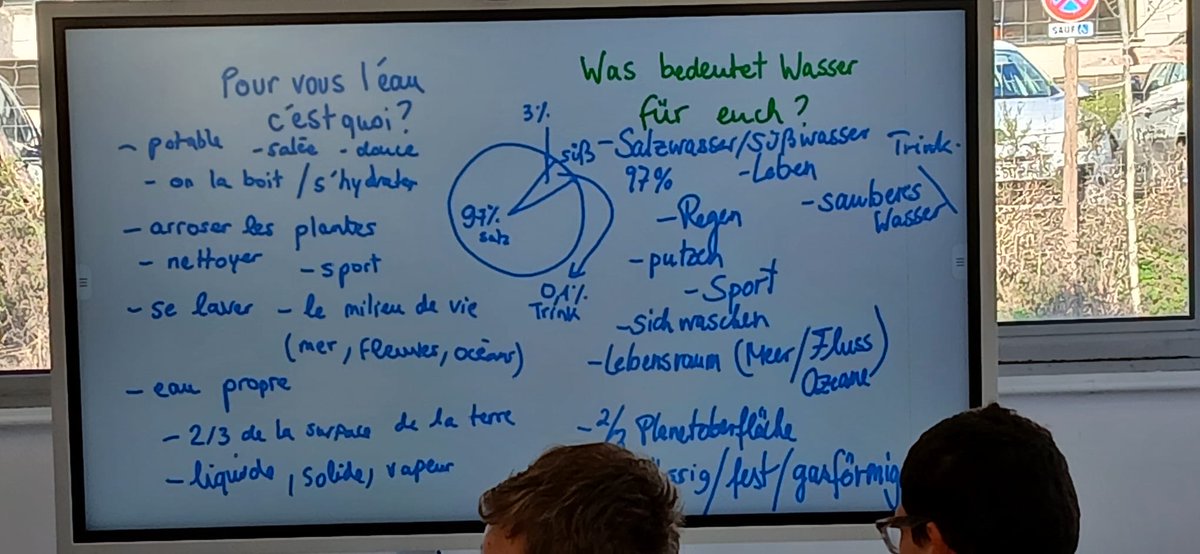 Pour vous l'éau
c'est quoi?
- potable - salée - douce
- on la boit / s'hydrater
- arroser les plantes
- nettoyer - sport
- se laver - le milieu de vie
(mer, fleuves, océans)
- eau propre
- 2/3 de la surface de la terre
- liquide, solide, vapeur
3%
süß
97%
salz
0,1%
Trink
Was bedeutet Wasser
für euch?
- Salzwasser/Süßwasser
97% - Leben
Trink-
- sauberes
Wasser
- Regen
- putzen
- Sport
- sich waschen
- Lebensraum (Meer/Fluss)
Ozeane
- 2/3 Planetoberfläche
ssig/fest/gasförmig
SAUF